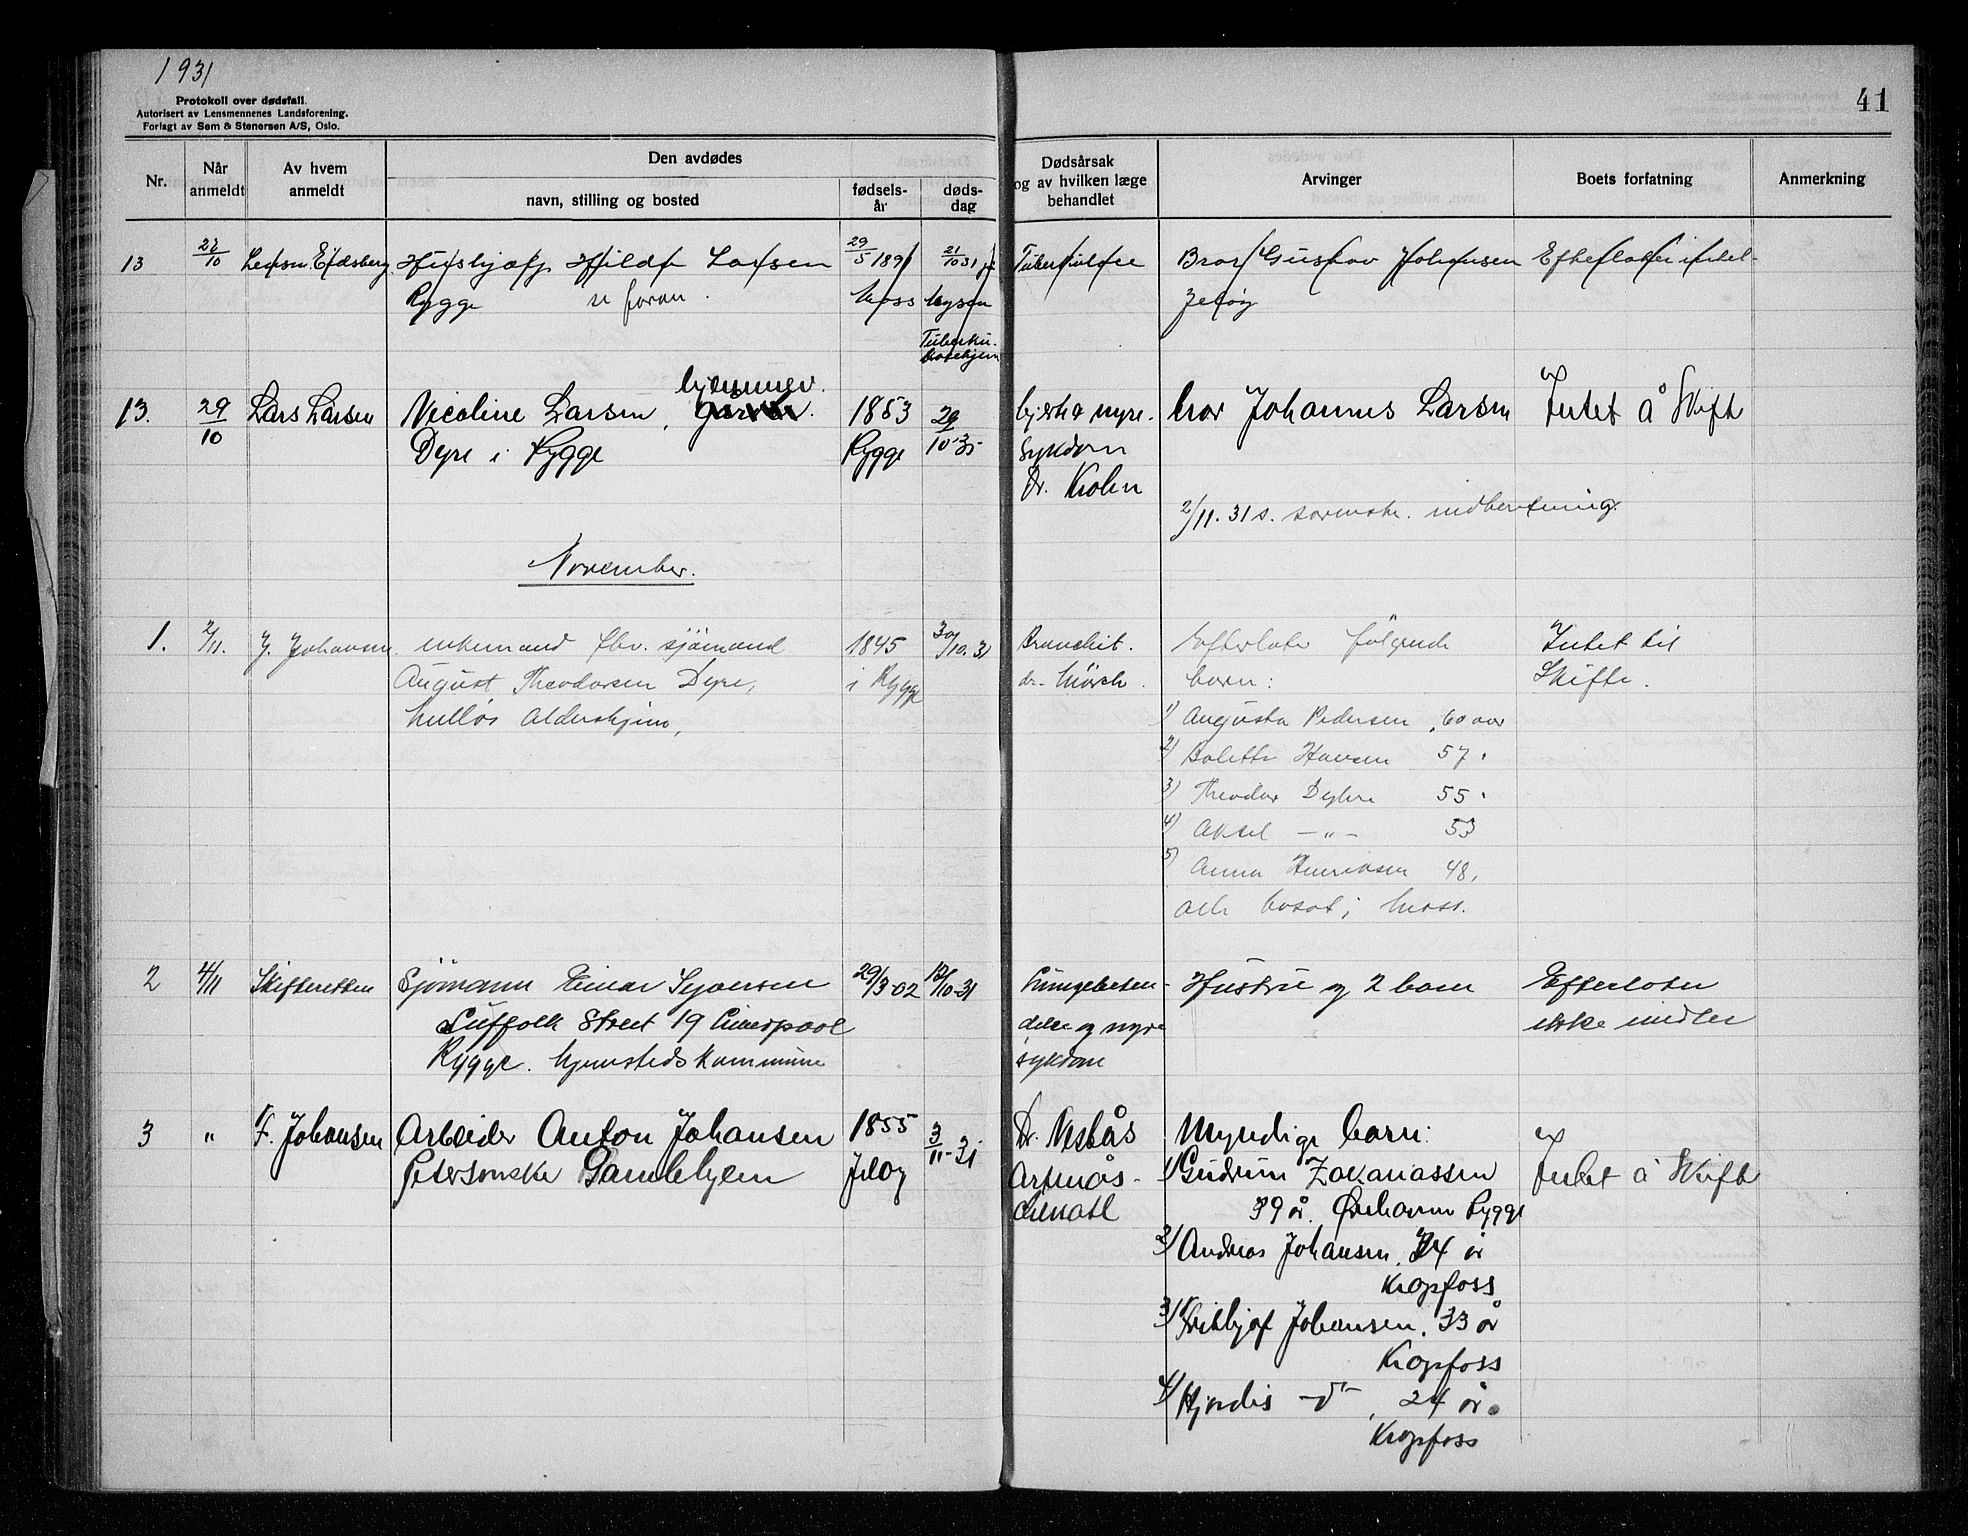 1931
Protokoll over dødsfall.
Autorisert av Lensmennenes Landsforening.
Forlagt av Sem & Stenersen A/S, Oslo.
41
Nr.
Når anmeldt
Av hvem anmeldt
Den avdødes
navn, stilling og bosted
fødsels-år
døds-dag
Dødsårsak og av hvilken læge behandlet
Arvinger
Boets forfatning
Anmerkning
13 22/10 Lensm. Eidsberg Hushjelp Hilda Larsen 29/5 1891 21/10 31 Tuberkulose Bror Gustav Johansen Efterlater intet
Rygge se foran. Moss Mysen Jeløy
Tuberku-
losehjem
hjemmev.
13. 29/10 Lars Larsen Nicoline Larsen, 1853 29/10-31 hjerte & nyre- bror Johannes Larsen Intet å skift
Dyre i Rygge Rygge sykdom
Dr. Kolen
2/11.31 s. sorenskr. indberetning.
November.
1. 2/11. J. Johansen. enkemand fhv. sjømand 1845 30/10.31 Bronchit. Efterlater følgende Intet til
August Theodorsen Dyre, i Rygge dr. Mörch. barn: Skifte.
Melløs Aldershjem,
1) Augusta Pedersen, 60 aar
2) Bolette Hansen 57 "
3) Theodor Dyhre 55 "
4) Aksel -"- 53
5) Anna Henriksen 48,
alle bosat i Moss.
2 4/11 Skifteretten Sjömann Einar Syversen 29/3-02 12/10-31 Lungebeten- Hustru og 2 barn Efterlater
Suffolk Street 19 Liverpool delse og nyre ikke midler
Rygge. hjemstedskommune sykdom
3 " F. Johansen Arbeider Anton Johansen 1855 3/11-31 Dr. Nesbøs Myndige barn: Intet å skift
Petersonske Gamlehjem Jeløy 1) Gudrun Zakariassen
39 år. Ørehavn Rygge
2) Andreas Johansen, 34 år
Kropfoss
3) Frithjof Johansen, 33 år
Kropfoss
4) Hjørdis -"- 24 år
Kropfoss